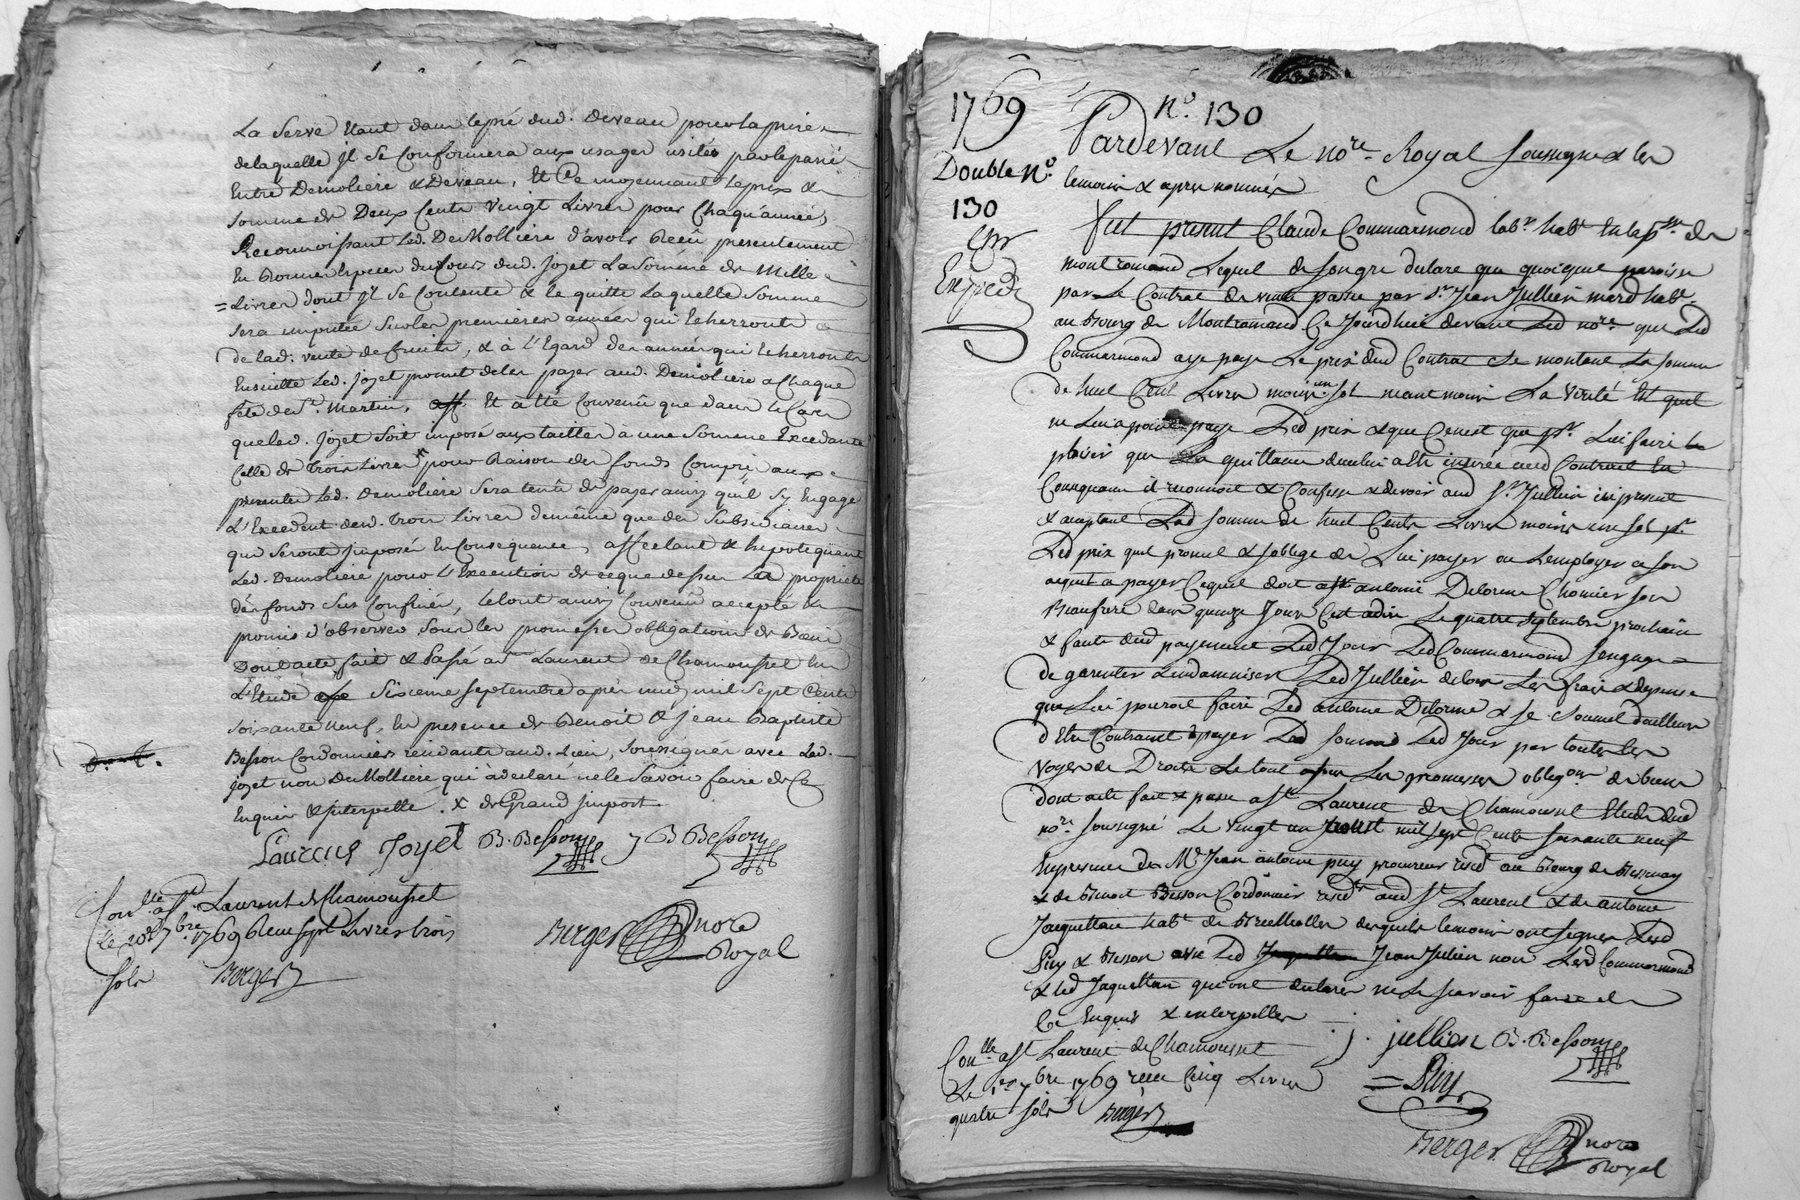 La Serve Etant dans le pré dud. Deveau pour la prise
de laquelle jl Se Conformera aux usages usités par le passé
Entre Demoliere & Deveau, Et Ce moyennant le prix &
Somme de Deux Cents Vingt Livres pour Chaqu'année,
Reconnoissant Led. DeMolliere d'avoir Receu presentement
En bonnes Especes du Cours dud. Joyet La Somme de Mille
= Livres dont jl Se Contente & le quitte Laquelle Somme
Sera imputée Sur les premieres années qui Echerront
de lad: vente de fruits, & à l'Egard des années qui Echerront
Ensuitte Led. Joyet promet de les payer aud. Demoliere a Chaque
fête de St. Martin, Et a été Convenû que dans le Cas
que led. Joyet Soit imposé aux tailles à une Somme Excedante
Celle de trois Livres pour Raison des fonds Compris aux
presentes Led. Demoliere Sera tenû de payer ainsy qu'il s'y Engage
L'Excedent desd. trois Livres de même que des Subsidiaires
qui Seront jmposé En Consequence, affectant & hipotequant
Led. Demoliere pour l'Execution de ce que dessus La propriété
des fonds Sus Confinés, le tout ainsy Convenû accepté &
promis d'observer Sous les promesses obligations de Biens
Dont acte fait & Passé a St. Laurent de Chamousset En
L'Etude Sixieme Septembre après midy mil Sept Cents
Soixante neuf, En presence de Benoit & Jean Baptiste
Besson Cordonniers résidants aud. Lieu, Soussignés avec Led.
Joyet non DeMolliere qui a declaré ne le Savoir faire de Ce
Enquis & Interpellé. X de Grand jmport
Laurens Joyet B. Besson J B Besson
Conlle a St. Laurent de Chamousset
Le 20e 7bre 1769 Receu Sept Livres trois
Sols Berger
Berger nore
Royal
1769 No. 130
Pardevant Le nore. Royal Soussigné & les
Double No.
temoins cy apres nommés
130
Fut présent Claude Commarmond labr. habt. En la psse. de
Expedié
montromand Lequel de Son gré declare que quoique paroisse
par Le Contrat de vente passé par Sr. Jean Jullien mard habt.
au Bourg de Montromand Ce Jourdhui devant Led nore. que Led
Commarmond aye payé Le prix dud Contrat Se montant La Somme
de huit Cent Livres moins un Sol neantmoins La Verité Est quil
ne Lui a point payé Led prix & que Ce n'est que pr. Lui faire
plaisir que La quittance d'icelui a été insérée aud Contrat En
Consequence il reconnoit & Confesse devoir aud Sr. Jullien ici present
& acceptant Lad Somme de huit Cents Livres moins un Sol pr.
Led prix quil promet & Soblige de Lui payer ou Lemployer a Son
acquit a payer Ce quil doit a Antoine Delorme Son
Beaufrere dans quinze Jours C'est adire Le quatre Septembre prochain
& faute dud payement Led Jour Led Commarmond Sengage
de garentir & indamniser Led Jullien de tous Les frais & depens
que Lui pouroit faire Led antoine Delorme & Se Soumet dailleurs
d'Etre Contraint à payer Lad Somme Led Jour par toutes les
Voyes de Droits Le tout Sous Les promesses obligons. de biens
dont acte fait & passé a St. Laurent de Chamousset Etude dud
nore. Soussigné Le Vingt un Aoust mil Sept Cents Soixante neuf
En presence de Me Jean Antoine puy procureur resid. au Bourg de Bessenay
& de Benoit Besson Cordonnier residt aud St Laurent & de Antoine
Jaquettan habt. de Brullioles desquels temoins ont Signés Lesd
Puy & Besson avec Led Jean Julien non Led Commarmond
& led Jaquettan qui ont declarés ne le Scavoir faire de
Ce Enquis & interpellés
j. jullien B. Besson
Conlle a St Laurent de Chamousset
Le 1er 7bre 1769 receu Cinq Livres
= Puy
quatre Sols Berger
Berger nore
Royal